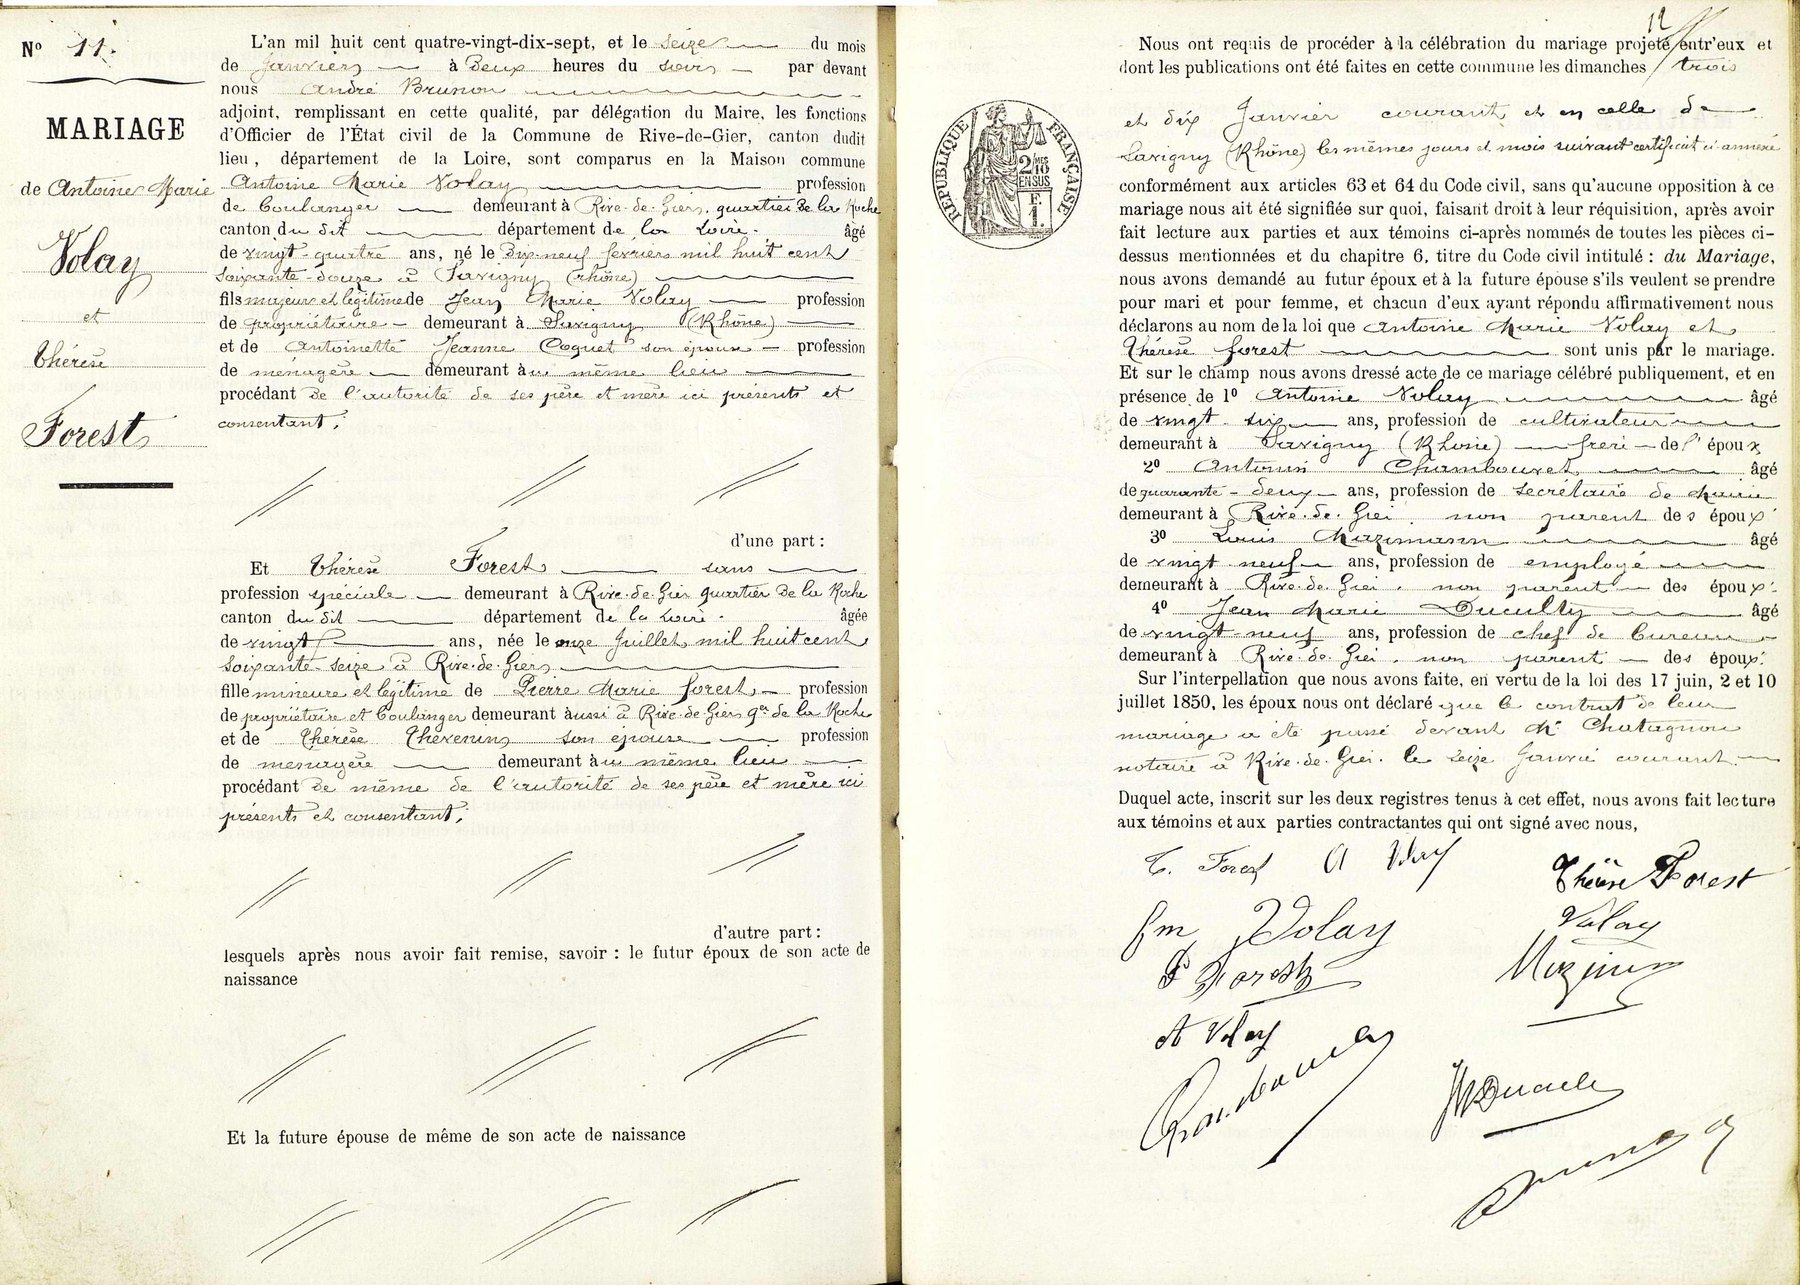 N° 11.
MARIAGE
de Antoine Marie
Volay
et
Thérèse
Forest
L'an mil huit cent quatre-vingt-dix-sept, et le seize du mois
de Janvier à Deux heures du soir par devant
nous André Brunon
adjoint, remplissant en cette qualité, par délégation du Maire, les fonctions
d'Officier de l'État civil de la Commune de Rive-de-Gier, canton dudit
lieu, département de la Loire, sont comparus en la Maison commune
Antoine Marie Volay profession
de boulanger demeurant à Rive-de-Gier, quartier de la Roche
canton du dit département de la Loire. âgé
de vingt-quatre ans, né le Dix-neuf février mil huit cent
soixante-douze à Savigny (rhône)
fils majeur et légitime de Jean Marie Volay profession
de propriétaire demeurant à Savigny (Rhône)
et de Antoinette Jeanne Coquet son épouse profession
de ménagère demeurant au même lieu
procédant de l'autorité de ses père et mère ici présents et
consentant;
d'une part :
Et Thérèse Forest sans
profession spéciale demeurant à Rive-de-Gier quartier de la Roche
canton du dit département de la Loire. âgée
de vingt ans, née le onze Juillet mil huit cent
soixante-seize à Rive-de-Gier
fille mineure et légitime de Pierre Marie Forest profession
de propriétaire et boulanger demeurant aussi à Rive-de-Gier qer de la Roche
et de Thérèse Thevenin son épouse profession
de ménagère demeurant au même lieu
procédant de même de l'autorité de ses père et mère ici
présents et consentant;
d'autre part :
lesquels après nous avoir fait remise, savoir : le futur époux de son acte de
naissance
Et la future épouse de même de son acte de naissance
12
Nous ont requis de procéder à la célébration du mariage projeté entr'eux et
dont les publications ont été faites en cette commune les dimanches trois
et dix Janvier courant et en celle de
Savigny (Rhône) les mêmes jours et mois suivant certificat ci annexé
RÉPUBLIQUE FRANÇAISE
2/10 MES
EN SUS
F.
1.
conformément aux articles 63 et 64 du Code civil, sans qu'aucune opposition à ce
mariage nous ait été signifiée sur quoi, faisant droit à leur réquisition, après avoir
fait lecture aux parties et aux témoins ci-après nommés de toutes les pièces ci-
dessus mentionnées et du chapitre 6, titre du Code civil intitulé : du Mariage,
nous avons demandé au futur époux et à la future épouse s'ils veulent se prendre
pour mari et pour femme, et chacun d'eux ayant répondu affirmativement nous
déclarons au nom de la loi que Antoine Marie Volay et
Thérèse forest sont unis par le mariage.
Et sur le champ nous avons dressé acte de ce mariage célébré publiquement, et en
présence de 1° Antoine Volay âgé
de vingt-six ans, profession de cultivateur
demeurant à Savigny (Rhône) frère de l'époux
2° Antonin Chambouvet âgé
de quarante-deux ans, profession de secrétaire de Mairie
demeurant à Rive-de-Gier. non parent des époux
3° Louis Mazimann âgé
de vingt neuf ans, profession de employé
demeurant à Rive-de-Gier. non parent des époux.
4° Jean Marie Ducully âgé
de vingt-neuf ans, profession de chef de bureau
demeurant à Rive-de-Gier. non parent des époux.
Sur l'interpellation que nous avons faite, en vertu de la loi des 17 juin, 2 et 10
juillet 1850, les époux nous ont déclaré que le contrat de leur
mariage a été passé devant Me Chatagnon
notaire à Rive-de-Gier. le seize Janvier courant.
Duquel acte, inscrit sur les deux registres tenus à cet effet, nous avons fait lecture
aux témoins et aux parties contractantes qui ont signé avec nous,
T. Forest A Volay Thérèse Forest
jm Volay Volay
P Forest
A Volay